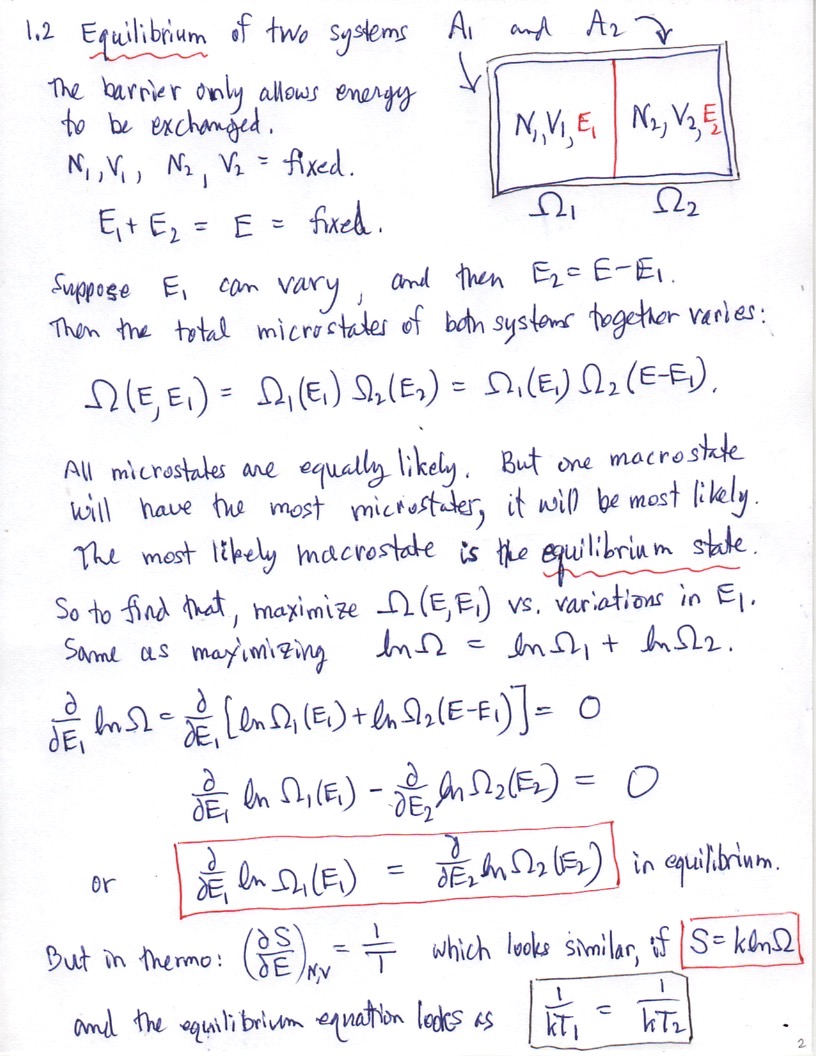 1.2 Equilibrium of two systems A₁ and A₂
The barrier only allows energy
to be exchanged.
N₁,V₁, N₂, V₂ = fixed.
E₁ + E₂ = E = fixed.
N₁,V₁,E₁
N₂,V₂,E₂
Ω₁
Ω₂
Suppose E₁ can vary, and then E₂ = E-E₁.
Then the total microstates of both systems together varies:
Ω(E,E₁) = Ω₁(E₁) Ω₂(E₂) = Ω₁(E₁) Ω₂(E-E₁).
All microstates are equally likely. But one macrostate
will have the most microstates, it will be most likely.
The most likely macrostate is the equilibrium state.
So to find that, maximize Ω(E,E₁) vs. variations in E₁.
Same as maximizing ln Ω = ln Ω₁ + ln Ω₂.
∂/∂E₁ ln Ω = ∂/∂E₁ [ln Ω₁(E₁) + ln Ω₂(E-E₁)] = 0
∂/∂E₁ ln Ω₁(E₁) - ∂/∂E₂ ln Ω₂(E₂) = 0
or ∂/∂E₁ ln Ω₁(E₁) = ∂/∂E₂ ln Ω₂(E₂) in equilibrium.
But in thermo: (∂S/∂E)N,V = 1/T which looks similar, if S = k ln Ω
and the equilibrium equation looks as 1/kT₁ = 1/kT₂
2